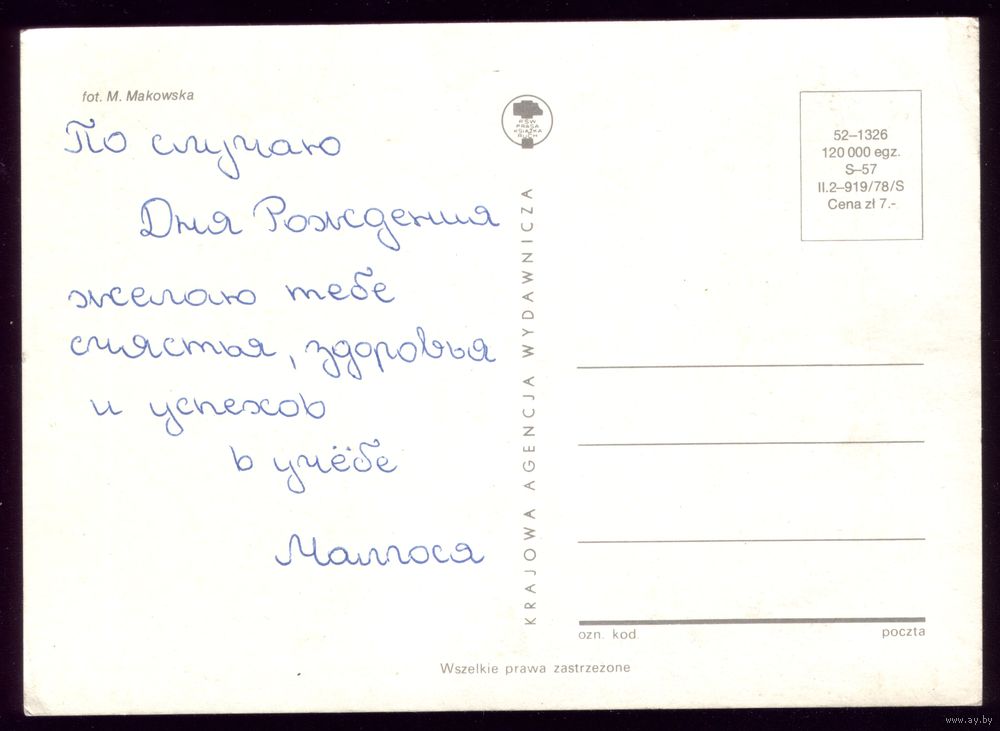 fot. M. Makowska
По случаю
Дня Рождения
желаю тебе
счястья, здоровья
и успехов
в учёбе
Малгося
RSW
PRASA
KSIĄŻKA
RUCH
KRAJOWA AGENCJA WYDAWNICZA
52–1326
120 000 egz.
S–57
II.2–919/78/S
Cena zł 7.-
ozn. kod
poczta
Wszelkie prawa zastrzeżone
www.ay.by